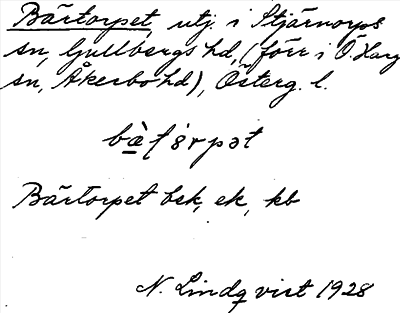 Bärtorpet, utj. i Stjärnorps
sn, Gullbergs hd, (förr i Ö. Harg
sn, Åkerbo hd), Österg. l.
Bärtorpet bsk, ek, kb
N. Lindqvist 1928